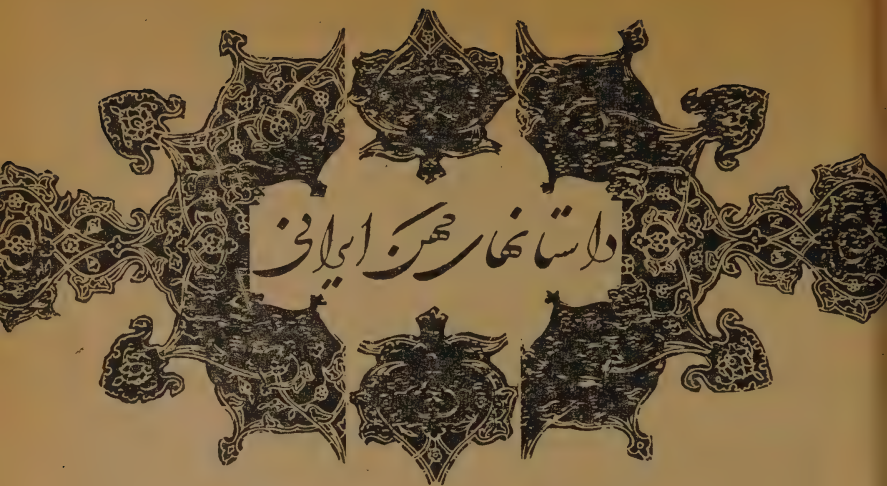 داستانهای کهن ایرانی